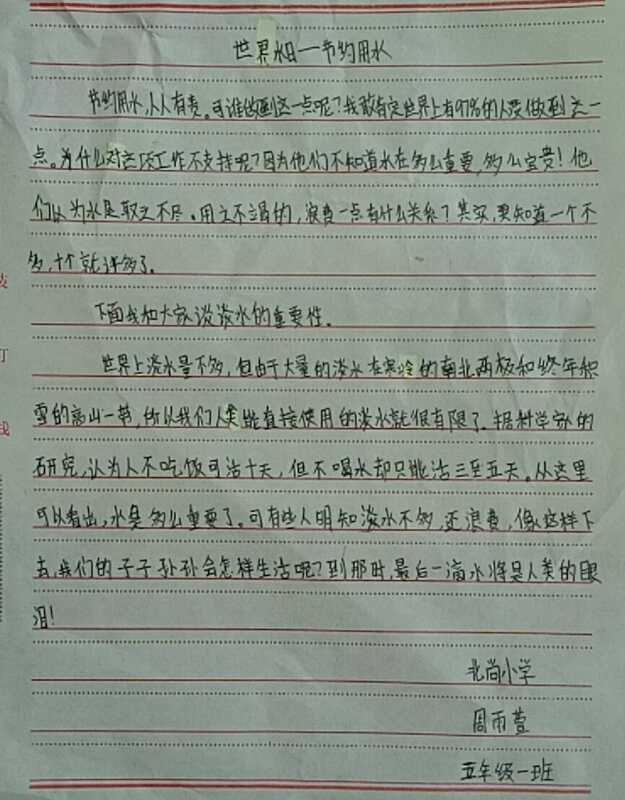 世界水日一节约用水
节约用水,人人有责。可谁做到这一点呢?我敢肯定世界上有97%的人没做到这一
点。为什么对这项工作不支持呢?因为他们不知道水在多么重要,多么宝贵!他
们以为水是取之不尽、用之不竭的,浪费一点有什么关系?其实,要知道一个不
多,十个就许多了。
下面我和大家谈谈淡水的重要性。
世界上淡水量不多,但由于大量的淡水在寒冷的南北两极和终年积
雪的高山一带,所以我们人类能直接使用的淡水就很有限了。据科学家的
研究,认为人不吃饭可活十天,但不喝水却只能活三至五天。从这里
可以看出,水是多么重要了。可有些人明知淡水不多,还浪费,像这样下
去,我们的子子孙孙会怎样生活呢?到那时,最后一滴水将是人类的眼
泪!
北尚小学
周雨萱
五年级一班